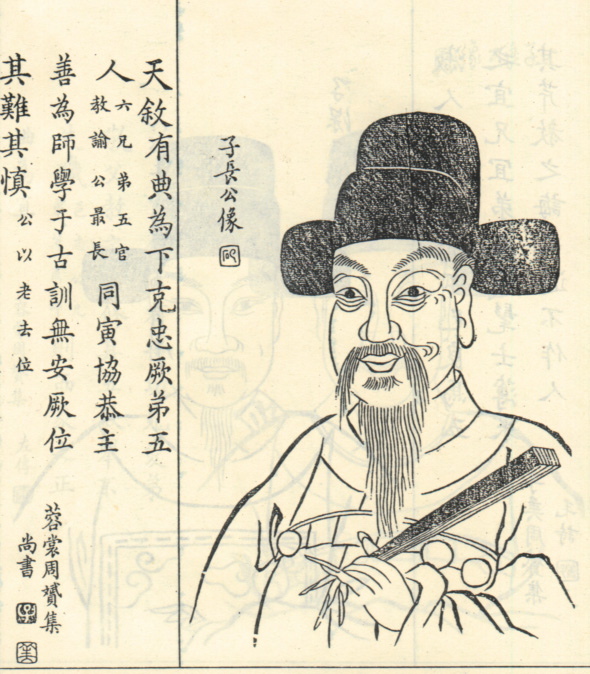 子長公像
天敘有典為下克忠厥弟五
人六兄弟五官教諭公最長同寅協恭主
善為師學于古訓無安厥位
其難其慎公以老去位
蓉裳周贇集
尚書